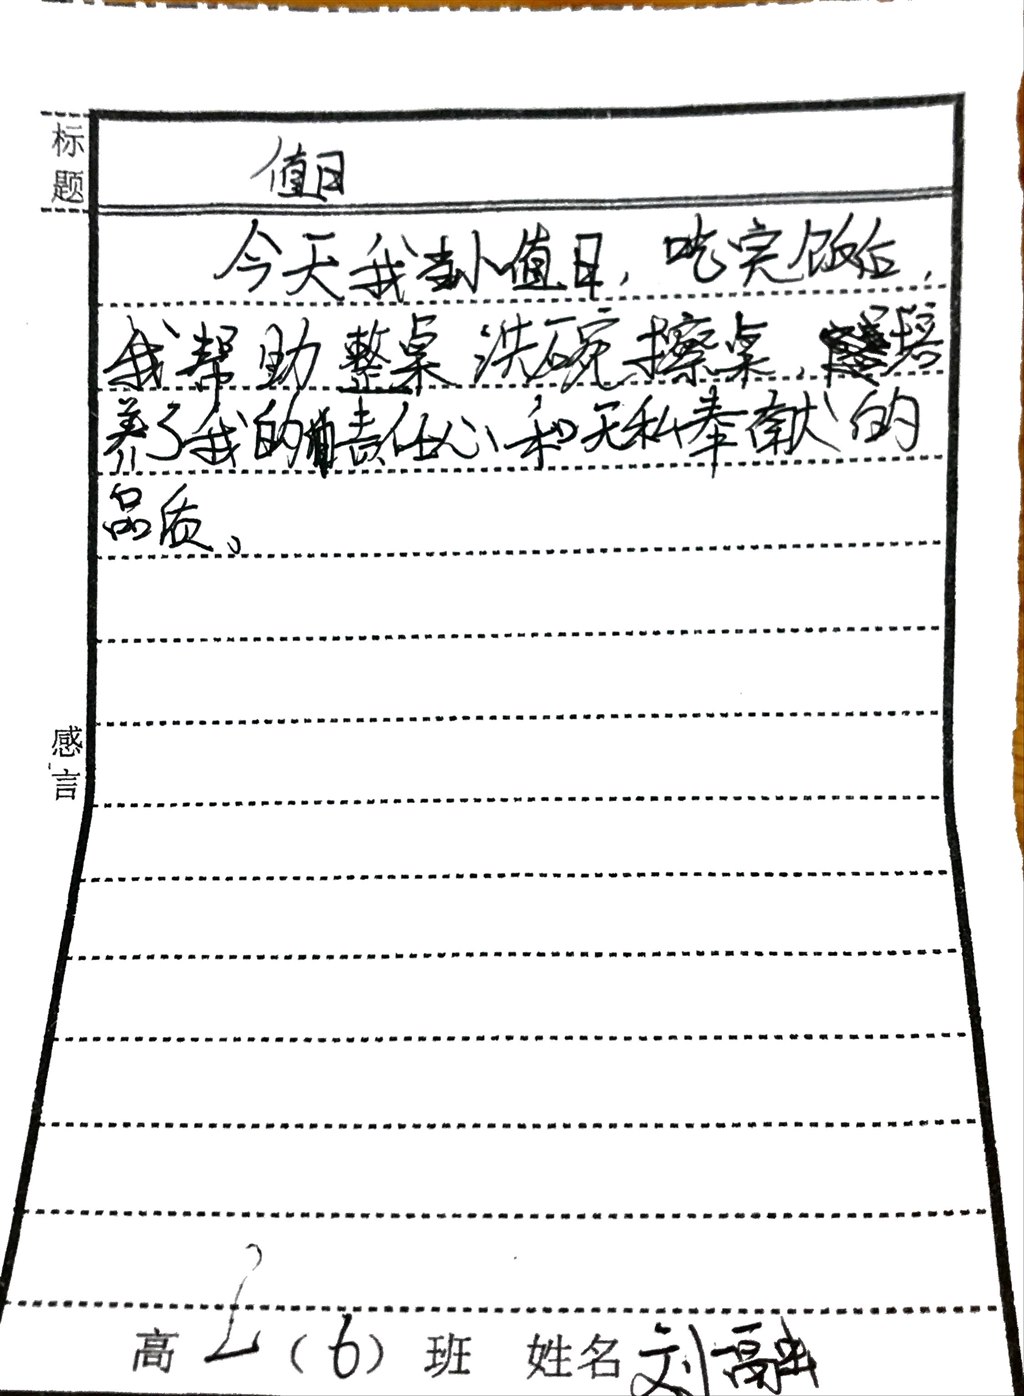 标题
值日
今天我小值日，吃完饭后，
我帮助整桌洗碗擦桌，培
养了我的责任心和无私奉献的
品质。
感言
高（6）班 姓名 刘融